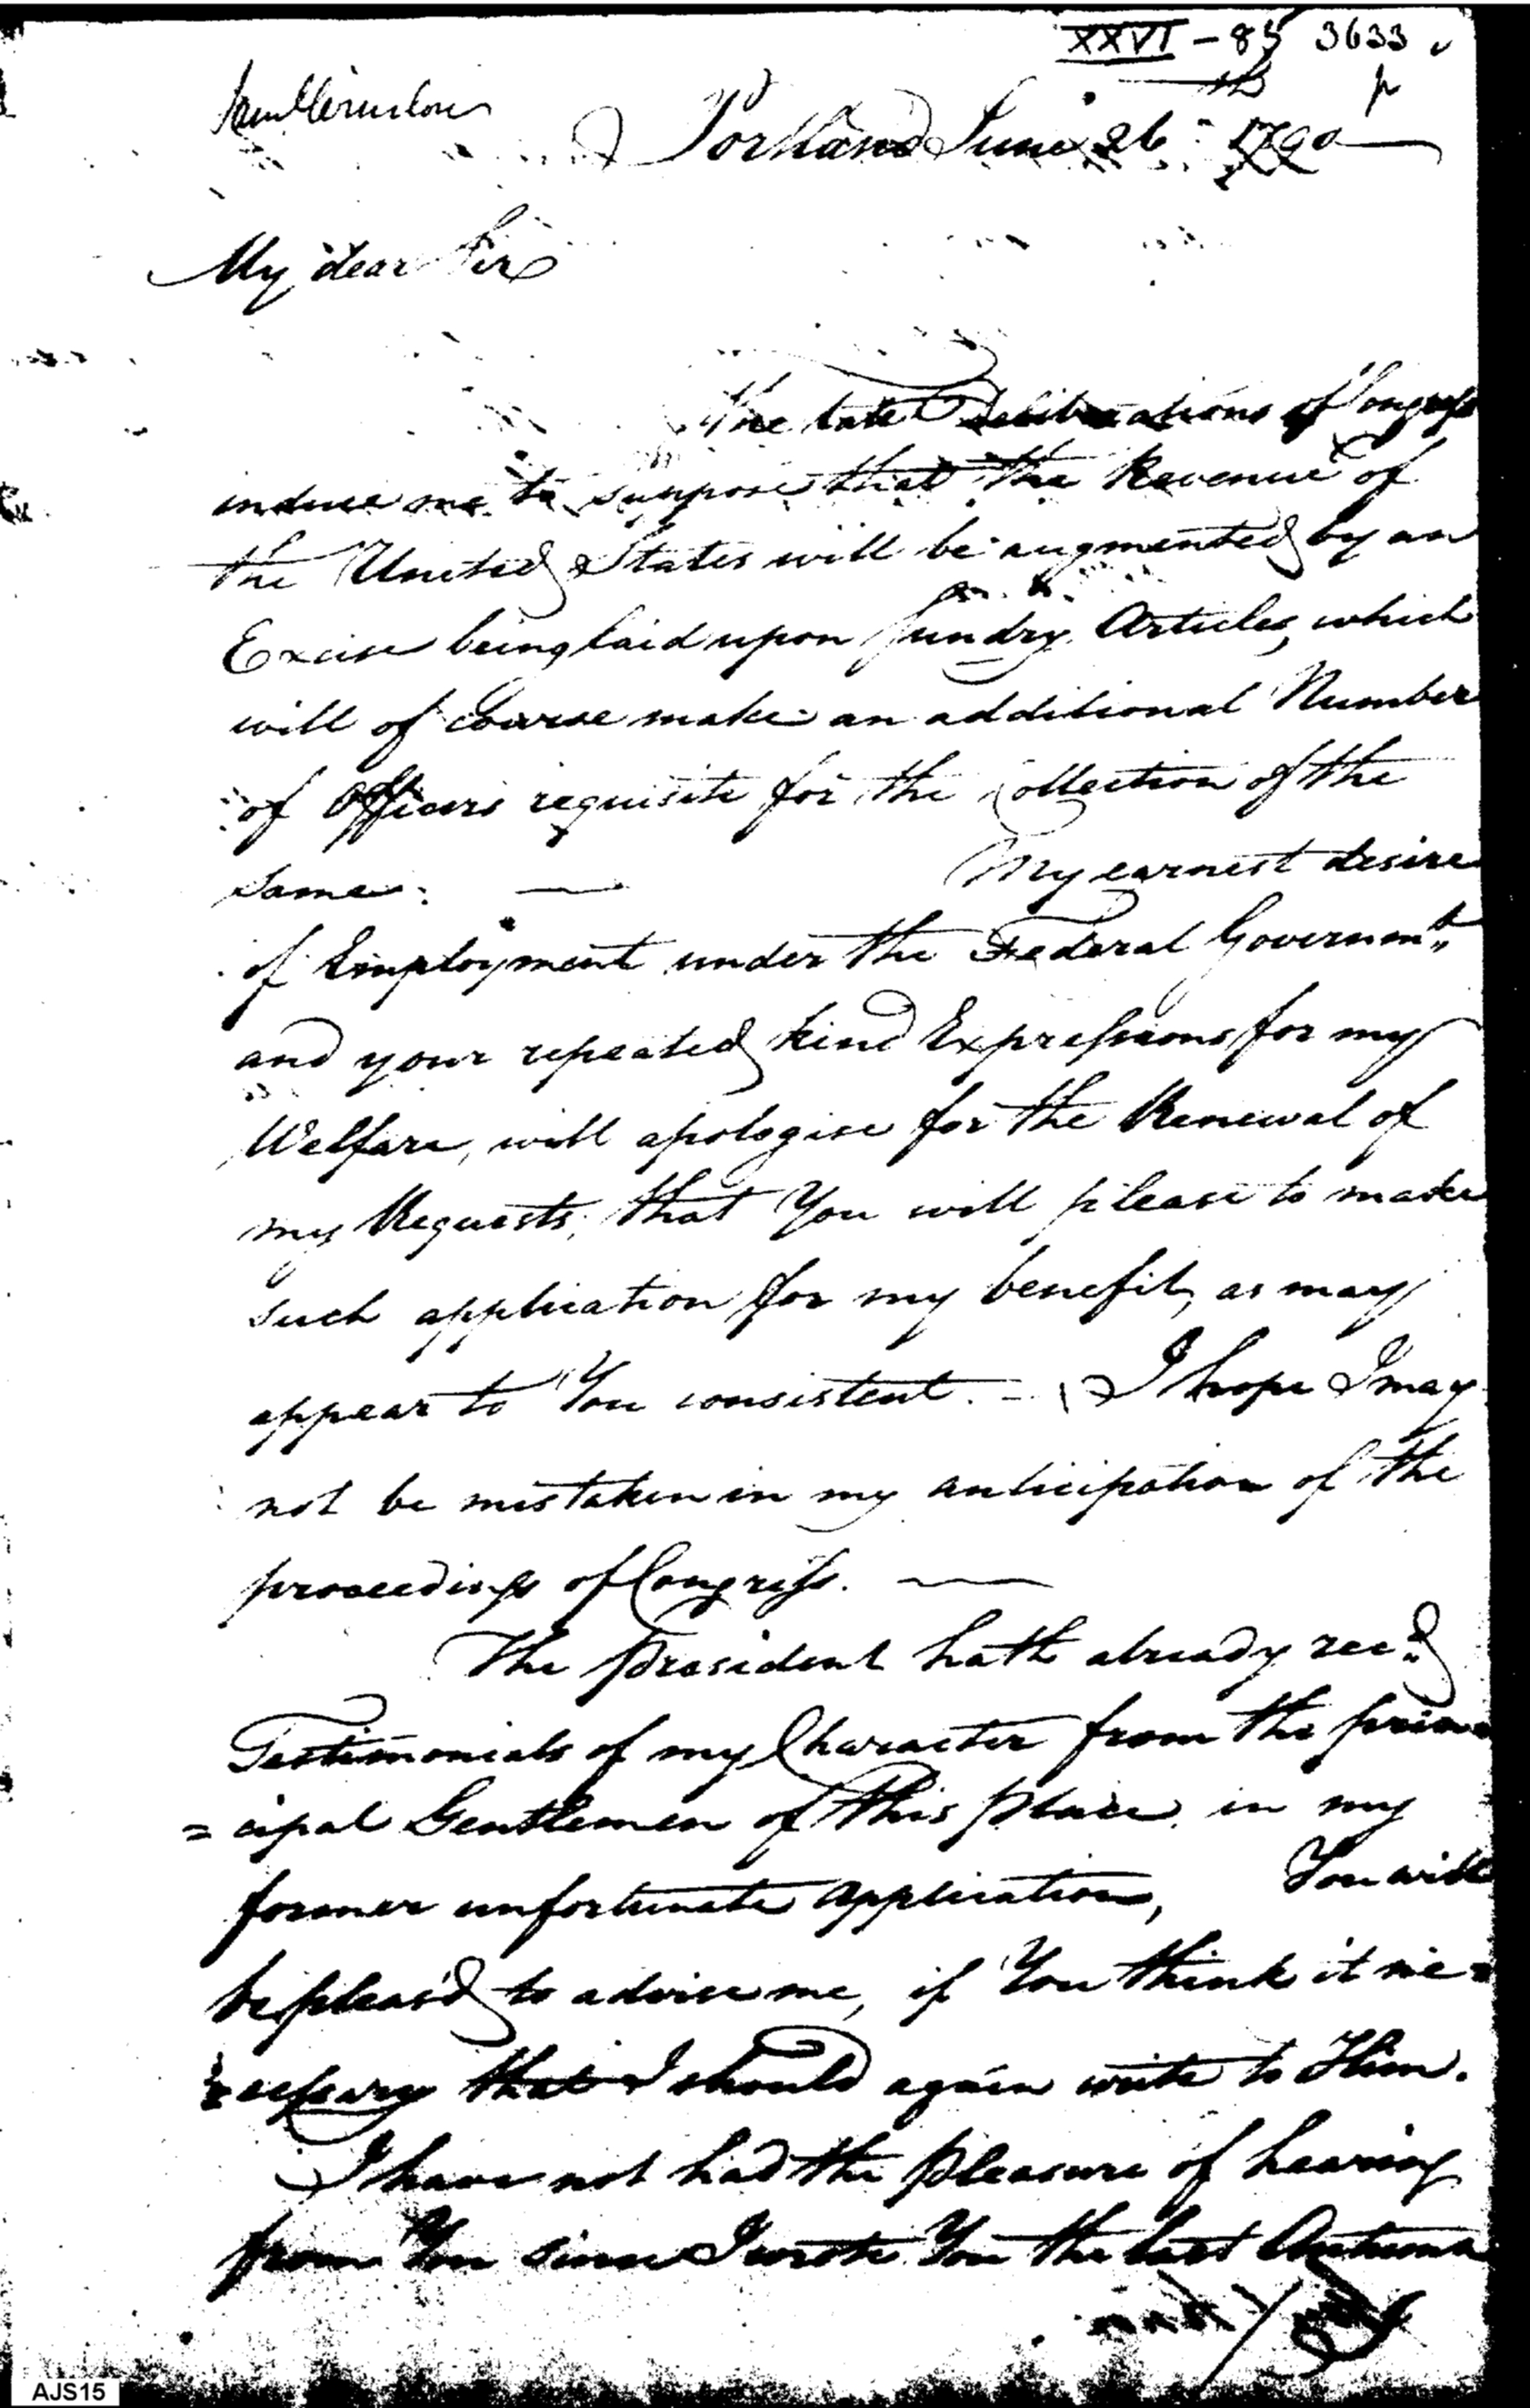 XXVI - 85 3633
Portland June 26th 1790
My dear Sir
The late Deliberations of Congress
induce me to suppose that the Revenue of
the United States will be augmented by an
Excise being laid upon sundry Articles, which
will of course make an additional Number
of Officers requisite for the Collection of the
same. — My earnest desire
of Employment under the Federal Governmt.,
and your repeated kind Expressions for my
Welfare, will apologise for the Renewal of
my Requests, that You will please to make
such application for my benefit, as may
appear to You consistent. — I hope I may
not be mistaken in my anticipation of the
proceedings of Congress. —
The President hath already recd.
Testimonials of my Character from the prin=
=cipal Gentlemen of this place in my
former unfortunate Application, You will
be pleas'd to advise me, if You think it ne=
=cessary that I should again write to Him.
I have not had the pleasure of hearing
from You since I wrote You the last Autumn
AJS15